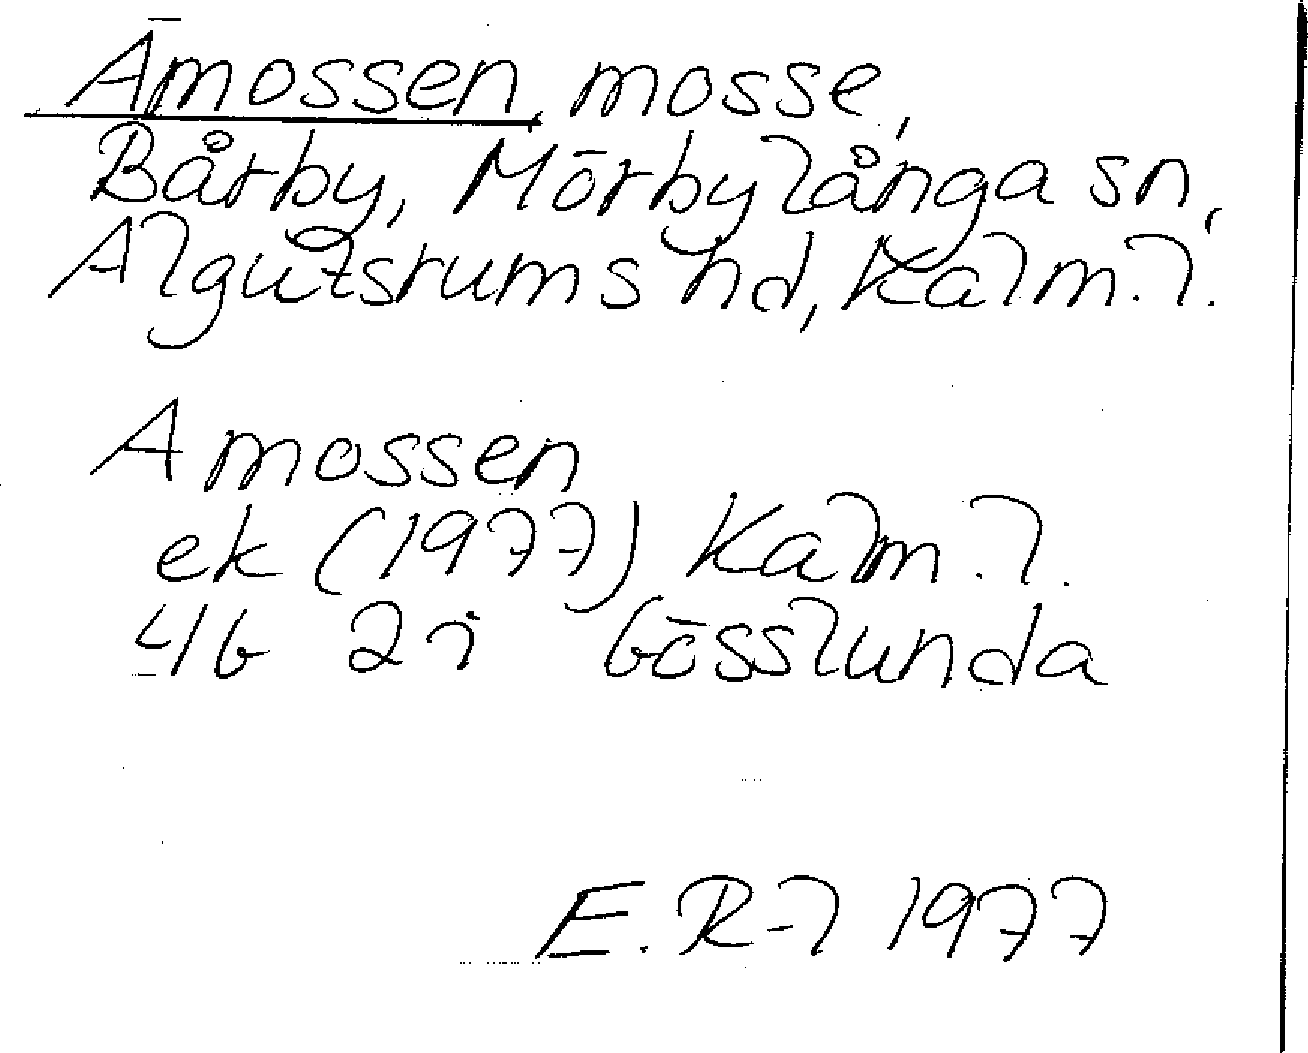 Ämossen, mosse,
Bårby, Mörbylånga sn,
Algutsrums hd, Kalm. l.
Amossen
ek (1977) Kalm. l.
4G 2i Gösslunda
E. R-l 1977